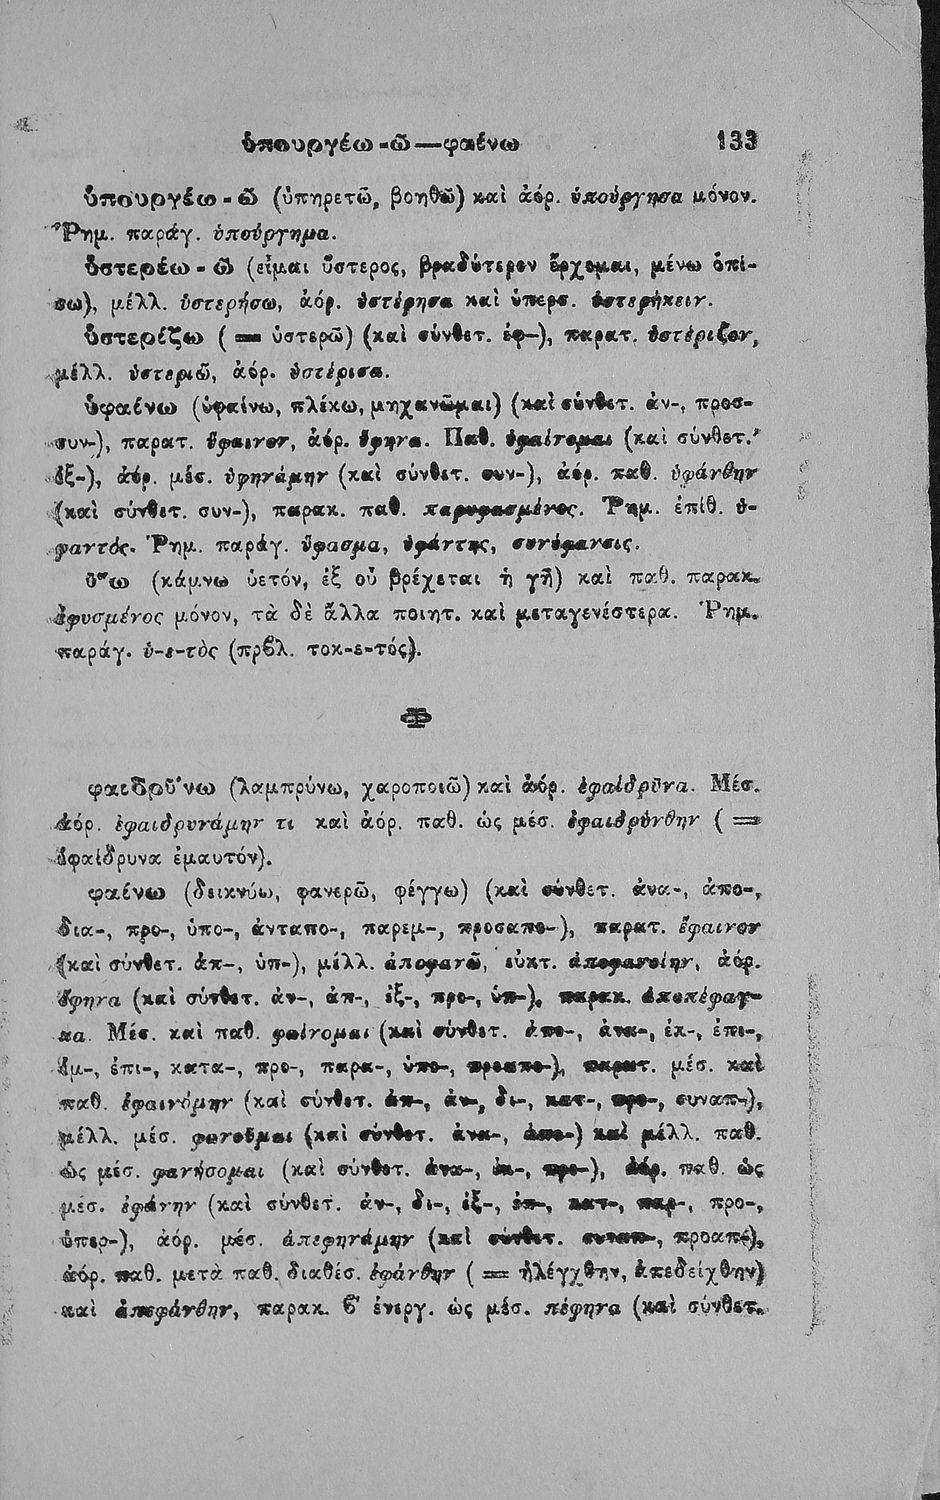 ὑπουργέω -ῶ — φαίνω 133
ὑπουργέω - ῶ (ὑπηρετῶ, βοηθῶ) καὶ ἀόρ. ὑπούργησα μόνον.
Ῥημ. παράγ. ὑπούργημα.
ὑστερέω - ῶ (εἶμαι ὕστερος, βραδύτερον ἔρχομαι, μένω ὀπί-
σω), μέλλ. ὑστερήσω, ἀόρ. ὑστέρησα καὶ ὑπερσ. ὑστερήκειν.
ὑστερίζω ( = ὑστερῶ) (καὶ σύνθετ. ἐφ-), παρατ. ὑστέριζον,
μέλλ. ὑστεριῶ, ἀόρ. ὑστέρισα.
ὑφαίνω (ὑφαίνω, πλέκω, μηχανῶμαι) (καὶ σύνθετ. ἀν-, προσ-
συν-), παρατ. ὕφαινον, ἀόρ. ὕφηνα. Παθ. ὑφαίνομαι (καὶ σύνθετ.
ἐξ-), ἀόρ. μέσ. ὑφηνάμην (καὶ σύνθετ. συν-), ἀόρ. παθ. ὑφάνθην
(καὶ σύνθετ. συν-), παρακ. παθ. παρυφασμένος. Ῥημ. ἐπίθ. ὑ-
φαντός. Ῥημ. παράγ. ὕφασμα, ὑφάντης, συνύφανσις.
ὕω (κάμνω ὑετόν, ἐξ οὗ βρέχεται ἡ γῆ) καὶ παθ. παρακ.
ἐφυσμένος μόνον, τὰ δὲ ἄλλα ποιητ. καὶ μεταγενέστερα. Ῥημ.
παράγ. ὑ-ε-τὸς (πρβλ. τοκ-ε-τός).
Φ
φαιδρύνω (λαμπρύνω, χαροποιῶ) καὶ ἀόρ. ἐφαίδρῡνα. Μέσ.
ἀόρ. ἐφαιδρυνάμην τι καὶ ἀόρ. παθ. ὡς μέσ. ἐφαιδρύνθην ( =
ἐφαίδρυνα ἐμαυτόν).
φαίνω (δεικνύω, φανερῶ, φέγγω) (καὶ σύνθετ. ἀνα-, ἀπο-,
δια-, προ-, ὑπο-, ἀνταπο-, παρεμ-, προσαπο-), παρατ. ἔφαινον
(καὶ σύνθετ. ἀπ-, ὑπ-), μέλλ. ἀποφανῶ, εὐκτ. ἀποφανοίην, ἀόρ.
ἔφηνα (καὶ σύνθετ. ἀν-, ἀπ-, ἐξ-, προ-, ὑπ-), παρακ. ἀποπέφαγ-
κα. Μέσ. καὶ παθ. φαίνομαι (καὶ σύνθετ. ἀπο-, ἀνα-, ἐκ-, ἐπι-,
ἐμ-, ἐπι-, κατα-, προ-, παρα-, ὑπο-, προαπο-), παρατ. μέσ. καὶ
παθ. ἐφαινόμην (καὶ σύνθετ. ἀπ-, ἀν-, δι-, κατ-, προ-, συναπ-),
μέλλ. μέσ. φανοῦμαι (καὶ σύνθετ. ἀνα-, ἀπο-) καὶ μέλλ. παθ.
ὡς μέσ. φανήσομαι (καὶ σύνθετ. ἀνα-, ἐκ-, προ-), ἀόρ. παθ. ὡς
μέσ. ἐφάνην (καὶ σύνθετ. ἀν-, δι-, ἐξ-, ἐπ-, κατ-, παρ-, προ-,
ὑπερ-), ἀόρ. μέσ. ἀπεφηνάμην (καὶ σύνθετ. συναπ-, προαπ-),
ἀόρ. παθ. μετὰ παθ. διαθέσ. ἐφάνθην ( = ἠλέγχθην, ἀπεδείχθην)
καὶ ἀπεφάνθην, παρακ. β' ἐνεργ. ὡς μέσ. πέφηνα (καὶ σύνθετ.